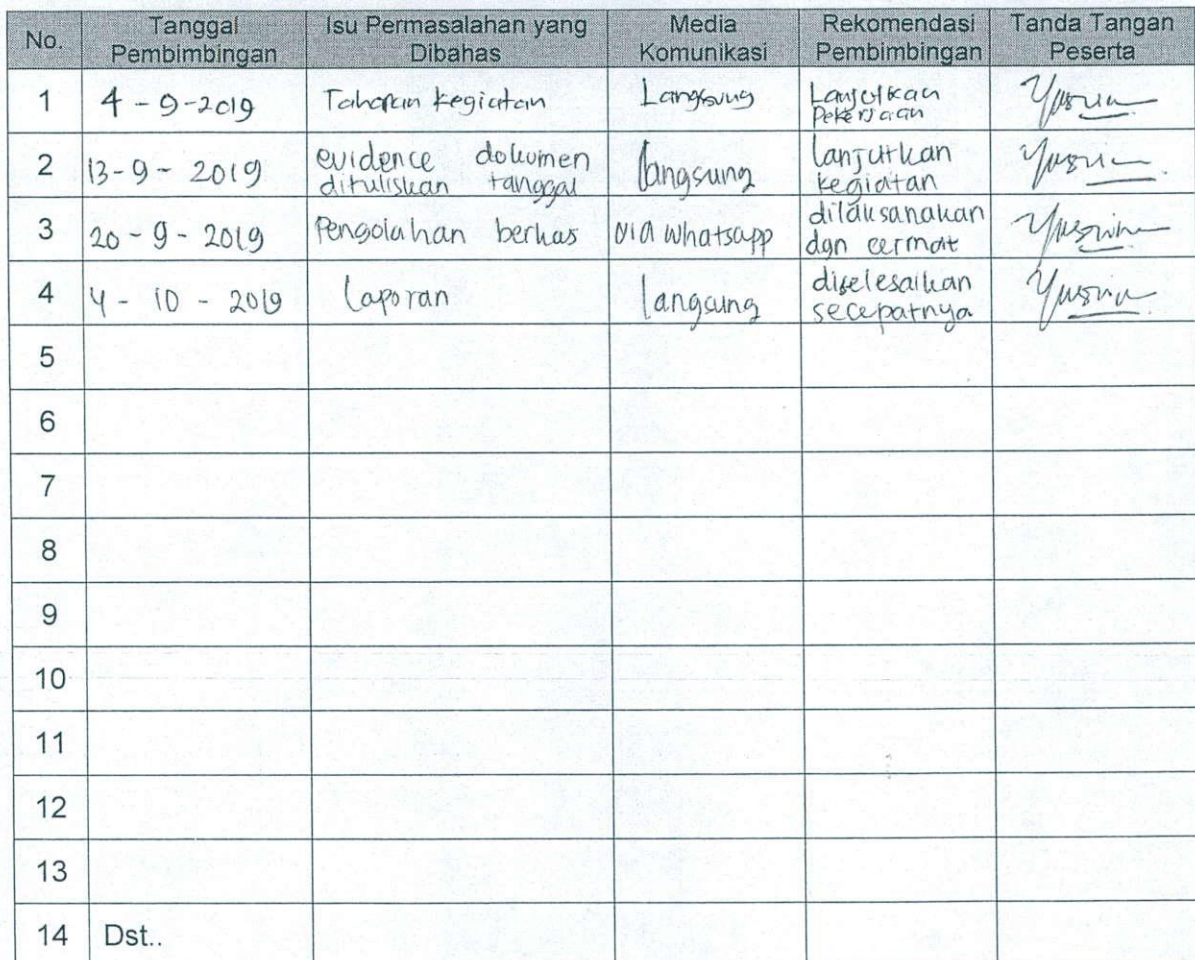 No. Tanggal Pembimbingan Isu Permasalahan yang Dibahas Media Komunikasi Rekomendasi Pembimbingan Tanda Tangan Peserta
1 4 - 9 - 2019 Tahapan kegiatan Langsung Lanjutkan Pekerjaan
2 13 - 9 - 2019 evidence dokumen dituliskan tanggal langsung lanjutkan kegiatan
3 20 - 9 - 2019 Pengolahan berkas via whatsapp dilaksanakan dgn cermat
4 4 - 10 - 2019 Laporan langsung diselesaikan secepatnya
5
6
7
8
9
10
11
12
13
14 Dst..